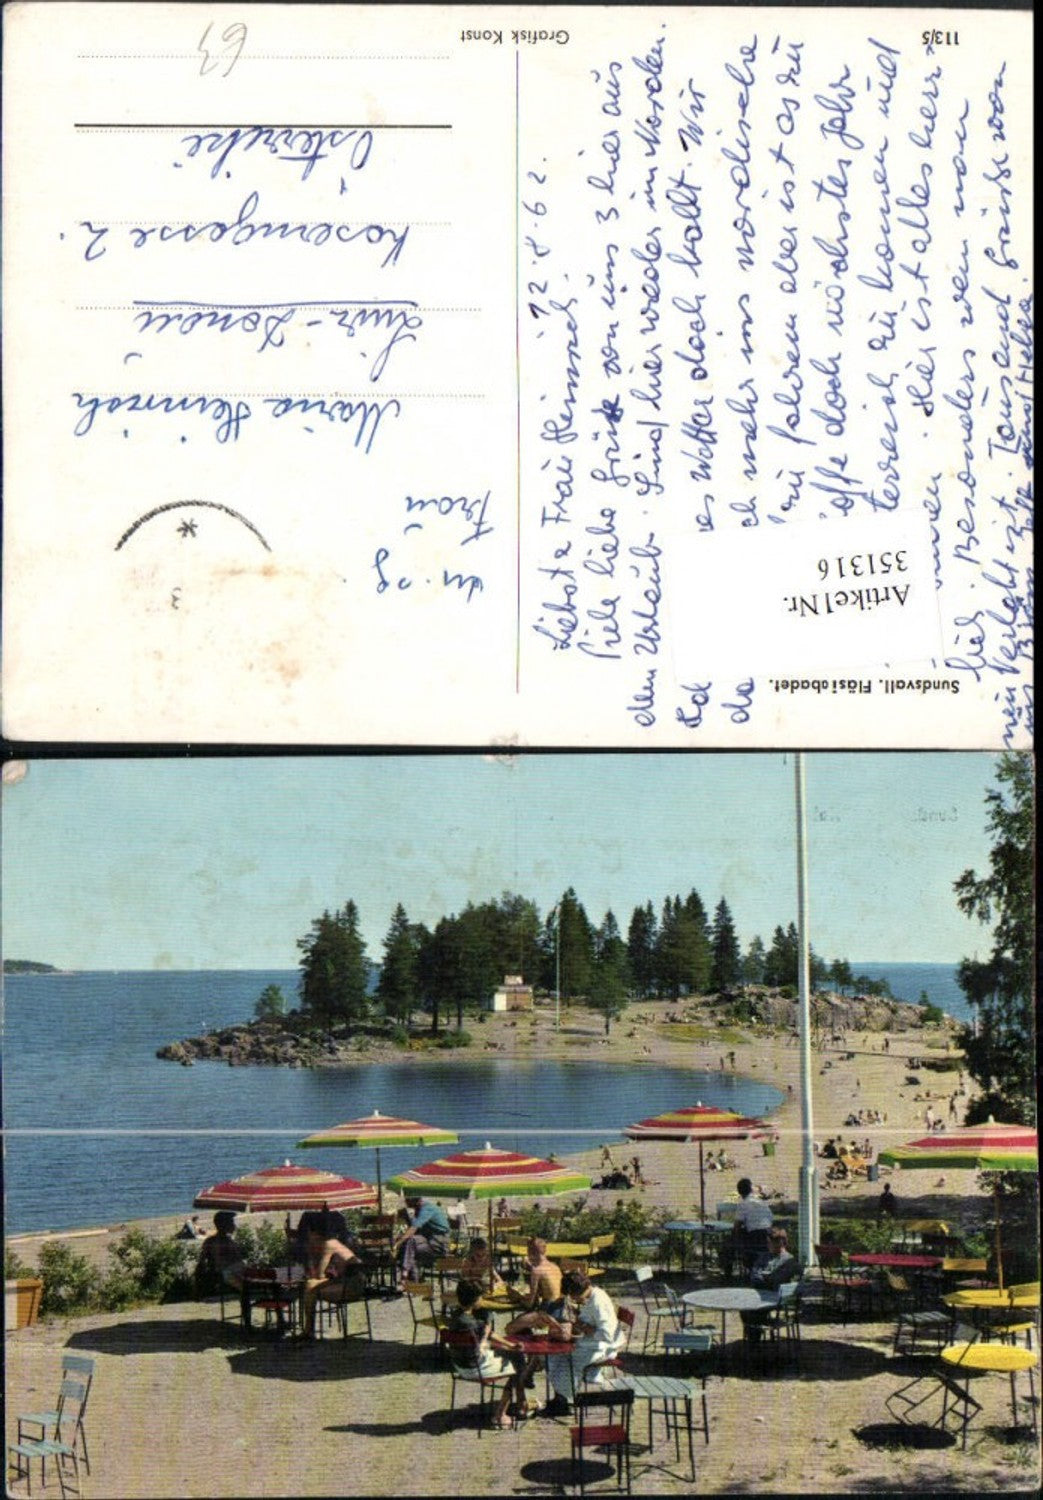 113/5
Grafisk Konst
63
Sundsvall. Fläsiabadet.
Artikel Nr.
351316
12.8.62.
Liebste Frau Heinrich!
Viele liebe Grüße von uns 3 hier aus
dem Urlaub. Sind hier wieder im Norden.
es Wetter doch kalt. Wir
da ch mehr ins nordische
zu fahren aber ist as zu
offe doch nächstes Jahr
terreich zu komen und
Hier ist alles herr-
Besonders wen man
verlobt ist. Tausend Grüße von
An
Frau
Maria Heinrich
Linz-Donau
Kaserngasse 2.
Österreich